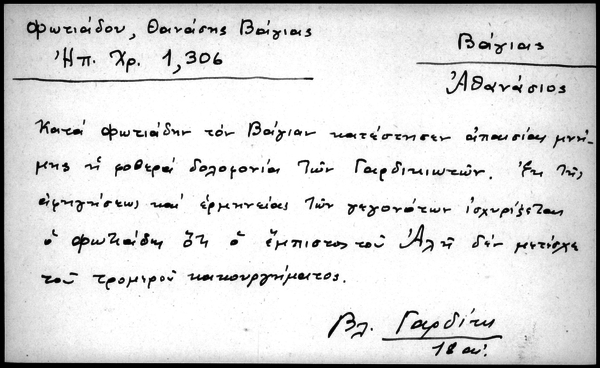 Φωτιάδου, Θανάσης Βάγιας
Ἠπ. Χρ. 1,306
Βάγιας
Ἀθανάσιος
Κατά Φωτιάδην τόν Βάγιαν κατέστησεν ἀπαισίας μνή-
μης ἡ φοβερά δολοφονία τῶν Γαρδικιωτῶν. Ἐκ τῆς
ἀφηγήσεως καί ἑρμηνείας τῶν γεγονότων ἰσχυρίζεται
ὁ Φωτιάδης ὅτι ὁ ἔμπιστος τοῦ Ἀλῆ δέν μετέσχε
τοῦ τρομεροῦ κακουργήματος.
Βλ. Γαρδίκι
18 αἰ.